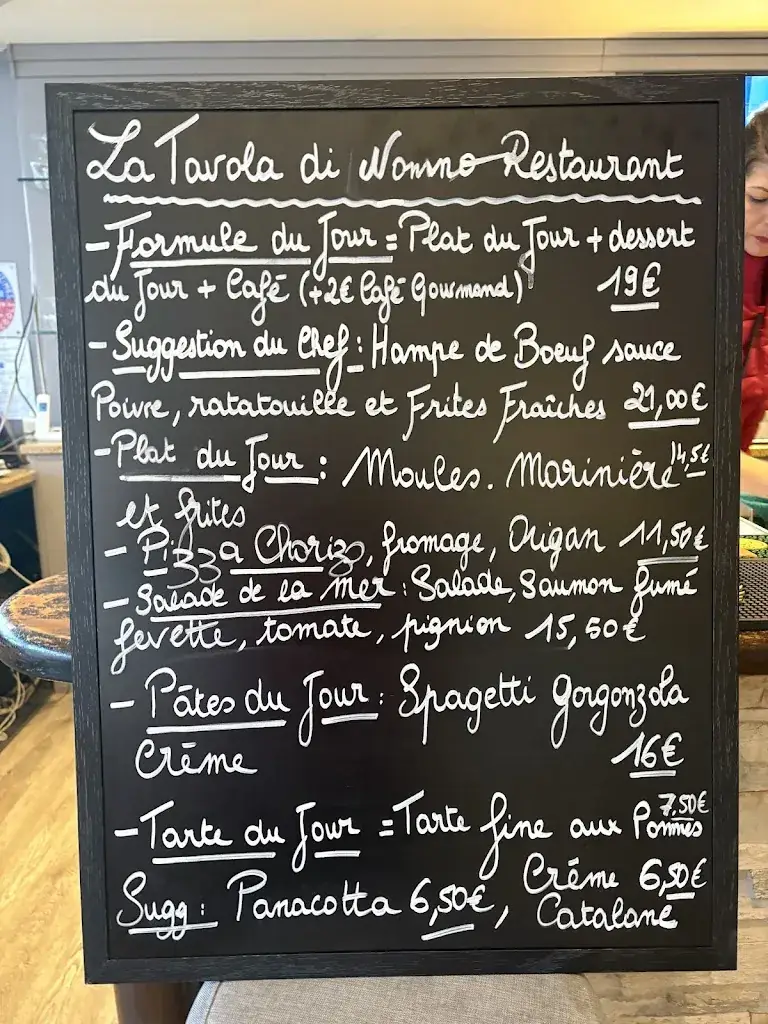 La Tavola di Nonno Restaurant
- Formule du Jour = Plat du Jour + dessert
du Jour + Café (+2€ Café Gourmand) 19€
- Suggestion du Chef : Hampe de Boeuf sauce
Poivre, ratatouille et Frites Fraîches 21,00€
- Plat du Jour : Moules. Marinière 14,5€
et frites
- Pizza Chorizo, fromage, Origan 11,50€
- Salade de la mer : Salade, Saumon fumé
fevette, tomate, pignion 15,50€
- Pâtes du Jour : Spagetti Gorgonzola
Crème 16€
- Tarte du Jour = Tarte fine aux Pommes 7,50€
Sugg : Panacotta 6,50€, Crème 6,50€
Catalane